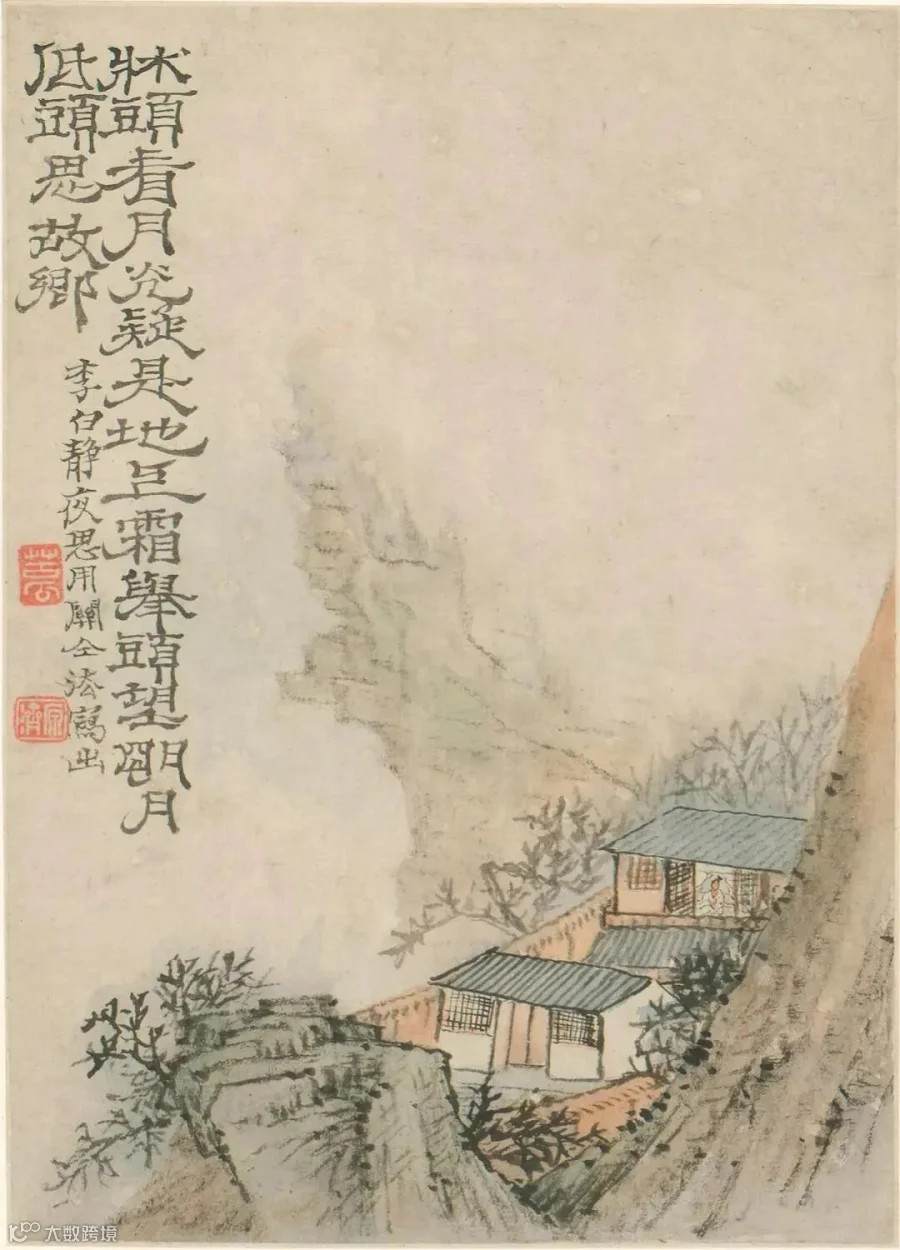 牀頭看月光疑是地上霜舉頭望朙月
低頭思故鄉
李白靜夜思用關仝法寫出
苦瓜
原濟
大数跨境